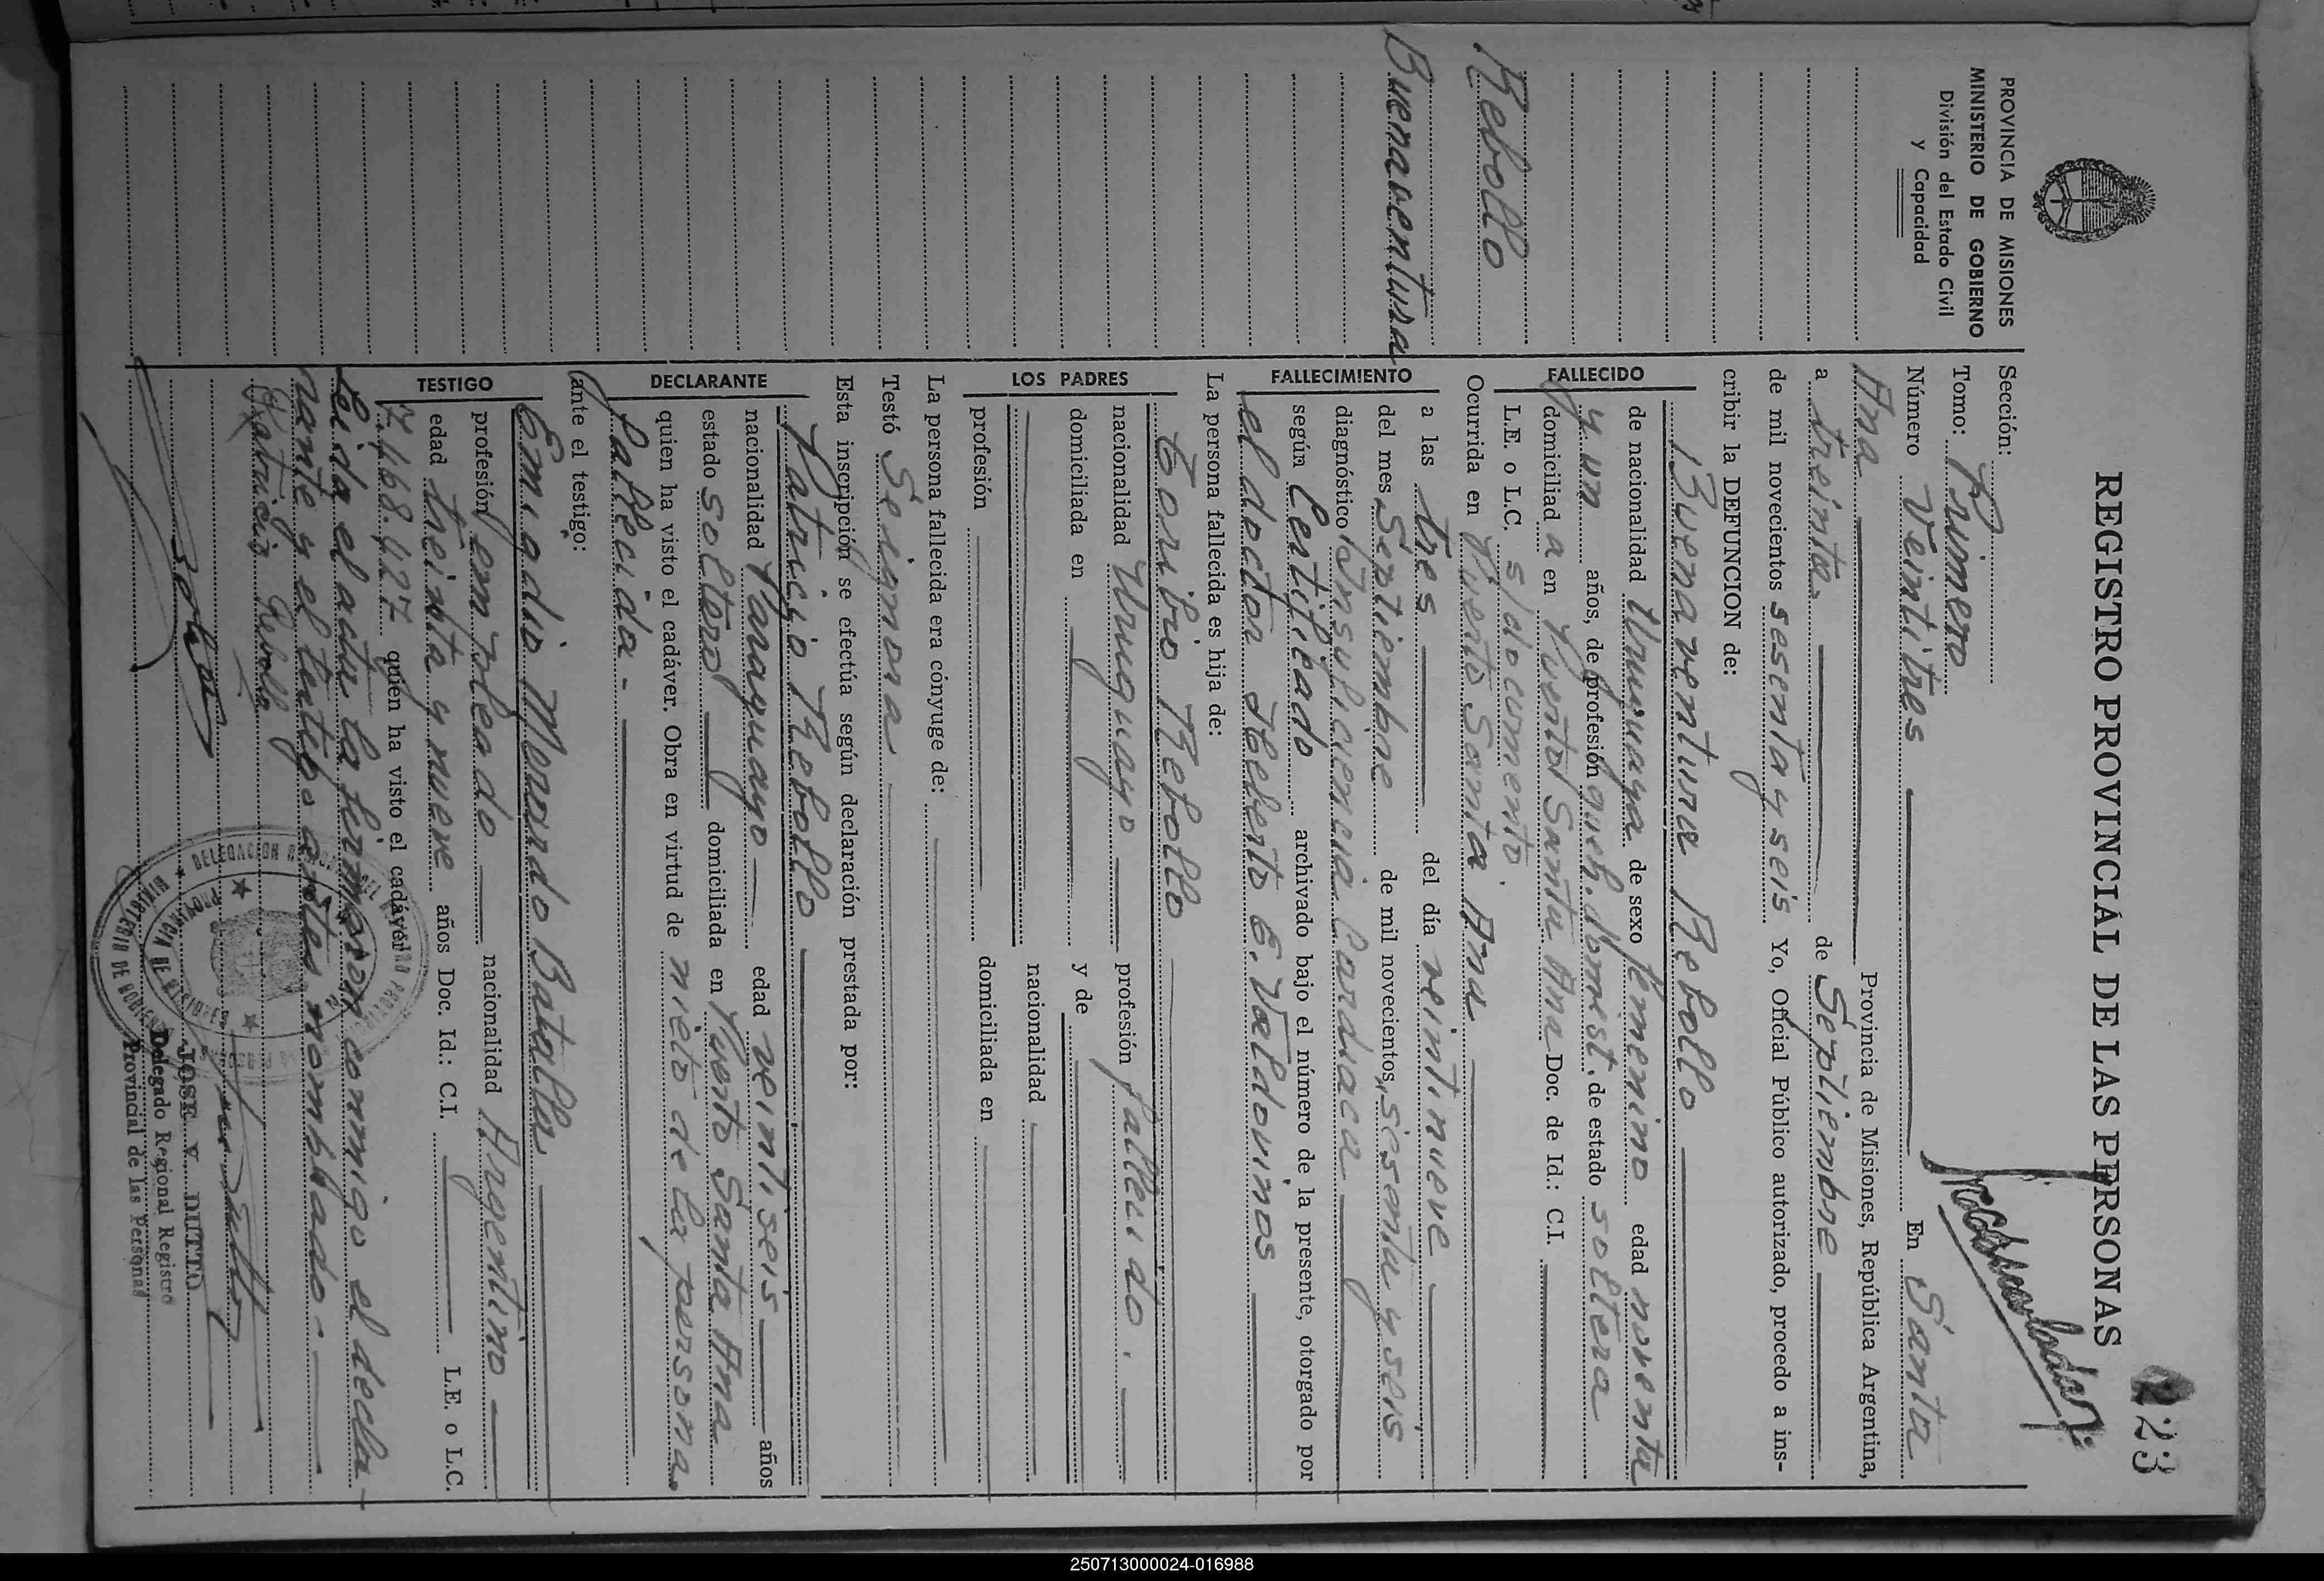 223
REGISTRO PROVINCIAL DE LAS PERSONAS
PROVINCIA DE MISIONES
MINISTERIO DE GOBIERNO
División del Estado Civil
y Capacidad
Rebollo
Buenaventura
Sección:
Tomo: Primero
Número Veintitres En Santa
Ana Provincia de Misiones, República Argentina,
a treinta de Septiembre
de mil novecientos sesenta y seis Yo, Oficial Público autorizado, procedo a ins-
cribir la DEFUNCION de:
FALLECIDO
Buenaventura Rebollo
de nacionalidad Uruguaya de sexo femenino edad noventa
y un años, de profesión queh. domest. de estado soltera
domiciliad a en Puerto Santa Ana Doc. de Id.: C.I.
L.E. o L.C. s/documento
Ocurrida en Puerto Santa Ana
FALLECIMIENTO
a las tres del día veintinueve
del mes Septiembre de mil novecientos sesenta y seis
diagnóstico Insuficiencia Cardiaca
según Certificado archivado bajo el número de la presente, otorgado por
el doctor Heberto E. Valdovinos
La persona fallecida es hija de:
LOS PADRES
Toribio Rebollo
nacionalidad Uruguayo profesión fallecido.
domiciliada en y de
nacionalidad
profesión domiciliada en
La persona fallecida era cónyuge de:
Testó Se ignora
Esta inscripción se efectúa según declaración prestada por:
DECLARANTE
Patricio Rebollo
nacionalidad Paraguayo edad veintiseis años
estado soltero domiciliada en Puerto Santa Ana
quien ha visto el cadáver. Obra en virtud de nieto de la persona
fallecida.-
ante el testigo:
TESTIGO
Emigdio Morondo Batalla
profesión empleado nacionalidad Argentino
edad treinta y nueve años Doc. Id.: C.I. L.E. o L.C.
7.468.427 quien ha visto el cadáver
Leida el acta la firmaron conmigo el decla-
rante y el testigo antes nombrado.-
Patricio Rebollo
JOSE V. DUTTO
Delegado Regional Registro
Provincial de las Personas
250713000024-016988